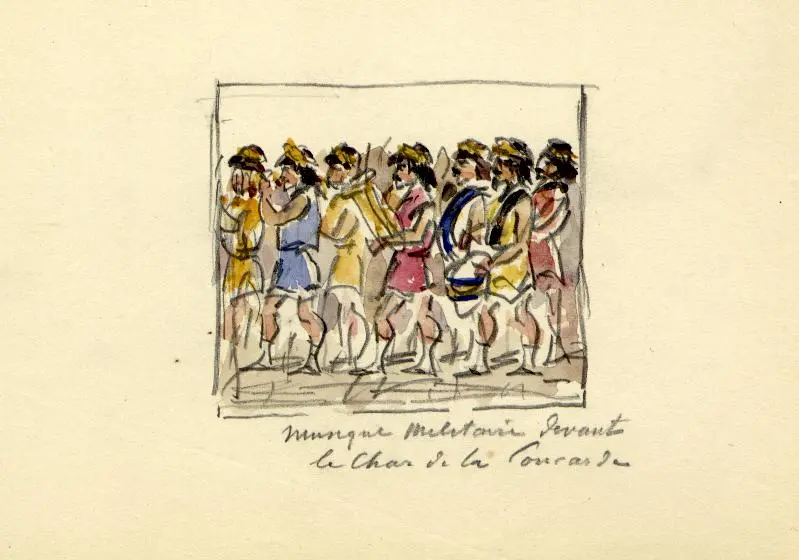 Musique Militaire devant
le Char de la Concorde